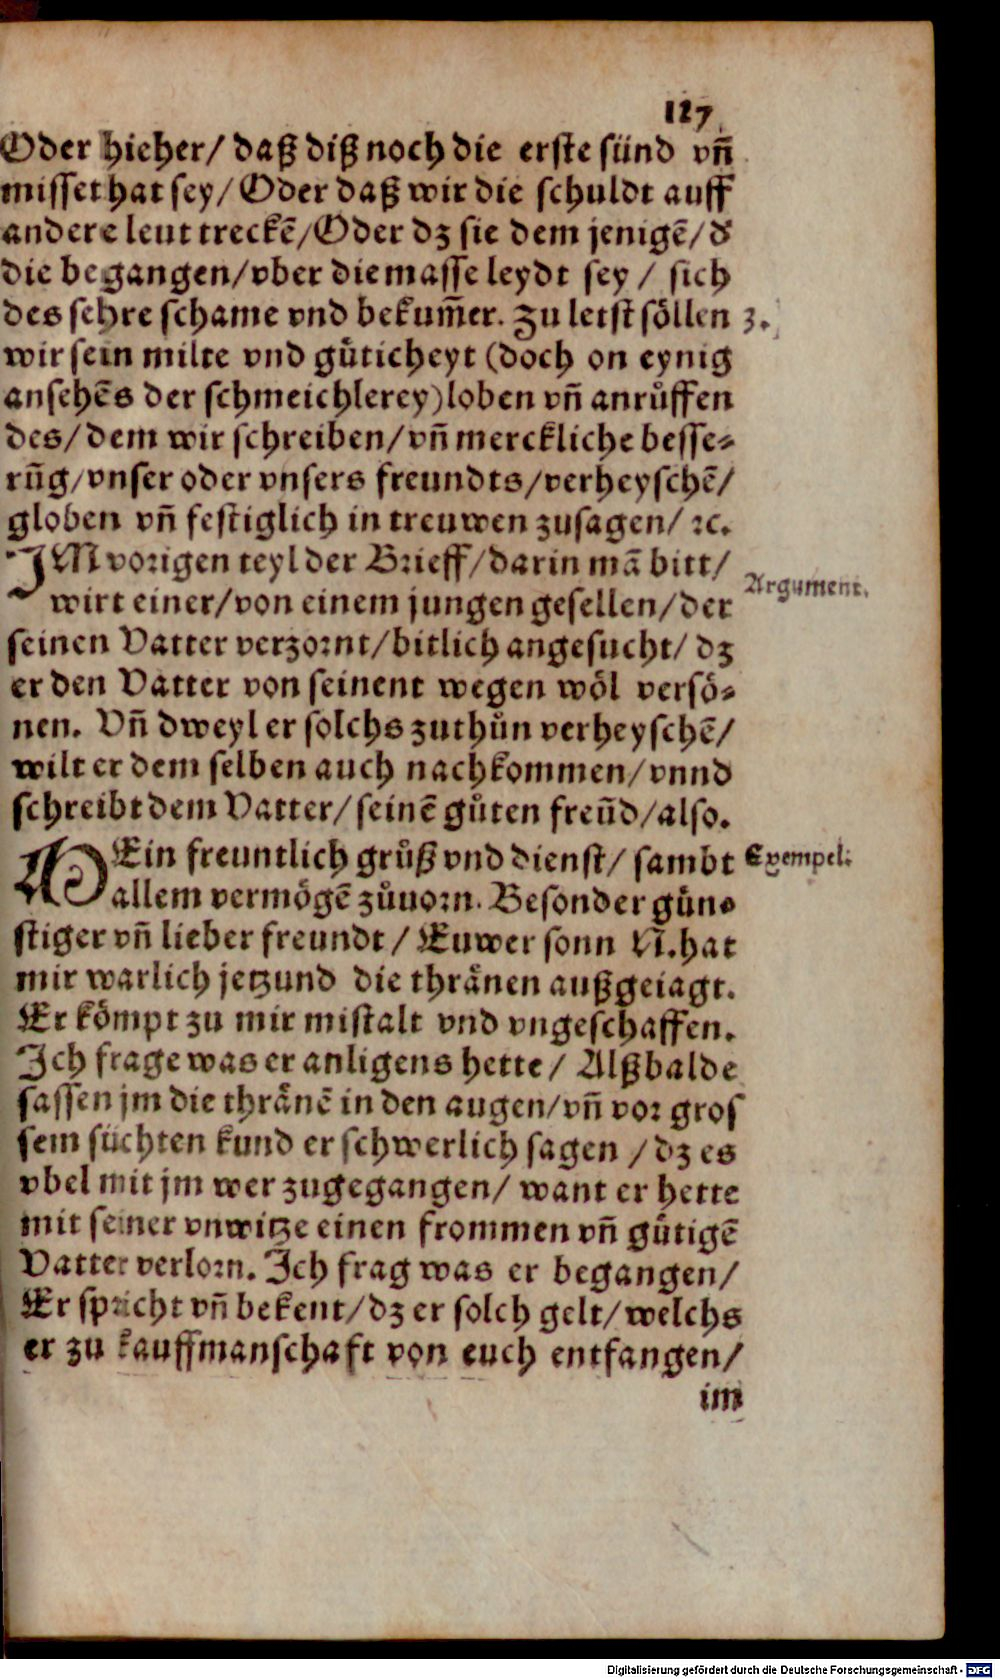 127
Oder hieher/ daß diß noch die erste sünd vñ
missethat sey/ Oder daß wir die schuldt auff
andere leut treckē/ Oder dz sie dem jenigē/ d'
die begangen/ vber die masse leydt sey / sich
des sehre schame vnd bekum̄er. Zu letst söllen 3.
wir sein milte vnd gůticheyt (doch on eynig
ansehēs der schmeichlerey) loben vñ anrůffen
des/ dem wir schreiben/ vñ merckliche besse⸗
rūg/ vnser oder vnsers freundts/ verheyschē/
globen vñ festiglich in treuwen zusagen/ ꝛc.
IM vorigen teyl der Brieff/ darin mā bitt/
Argument.
wirt einer/ von einem jungen gesellen/ der
seinen Vatter verzornt/ bitlich angesucht/ dz
er den Vatter von seinent wegen wöl versö⸗
nen. Vñ dweyl er solchs zuthůn verheyschē/
wilt er dem selben auch nachkommen/ vnnd
schreibt dem Vatter/ seinē gůten freūd/ also.
MEin freuntlich grůß vnd dienst/ sambt Exempel:
allem vermögē zůuorn. Besonder gün⸗
stiger vñ lieber freundt / Euwer sonn N. hat
mir warlich jetzund die thränen außgeiagt.
Er kömpt zu mir mistalt vnd vngeschaffen.
Ich frage was er anligens hette / Alßbalde
sassen jm die thränē in den augen/ vñ vor gros
sem süchten kund er schwerlich sagen / dz es
vbel mit jm wer zugegangen/ want er hette
mit seiner vnwitze einen frommen vñ gůtigē
Vatter verlorn. Ich frag was er begangen/
Er spricht vñ bekent/ dz er solch gelt/ welchs
er zu kauffmanschaft von euch entfangen/
im
Digitalisierung gefördert durch die Deutsche Forschungsgemeinschaft - DFG